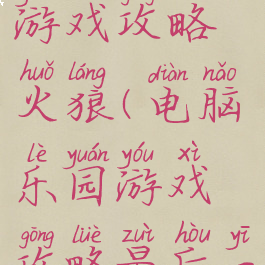 游戏攻略
huǒ láng diàn nǎo
火狼(电脑
lè yuán yóu xì
乐园游戏
gōng lüè zuì hòu yī
攻略最后一